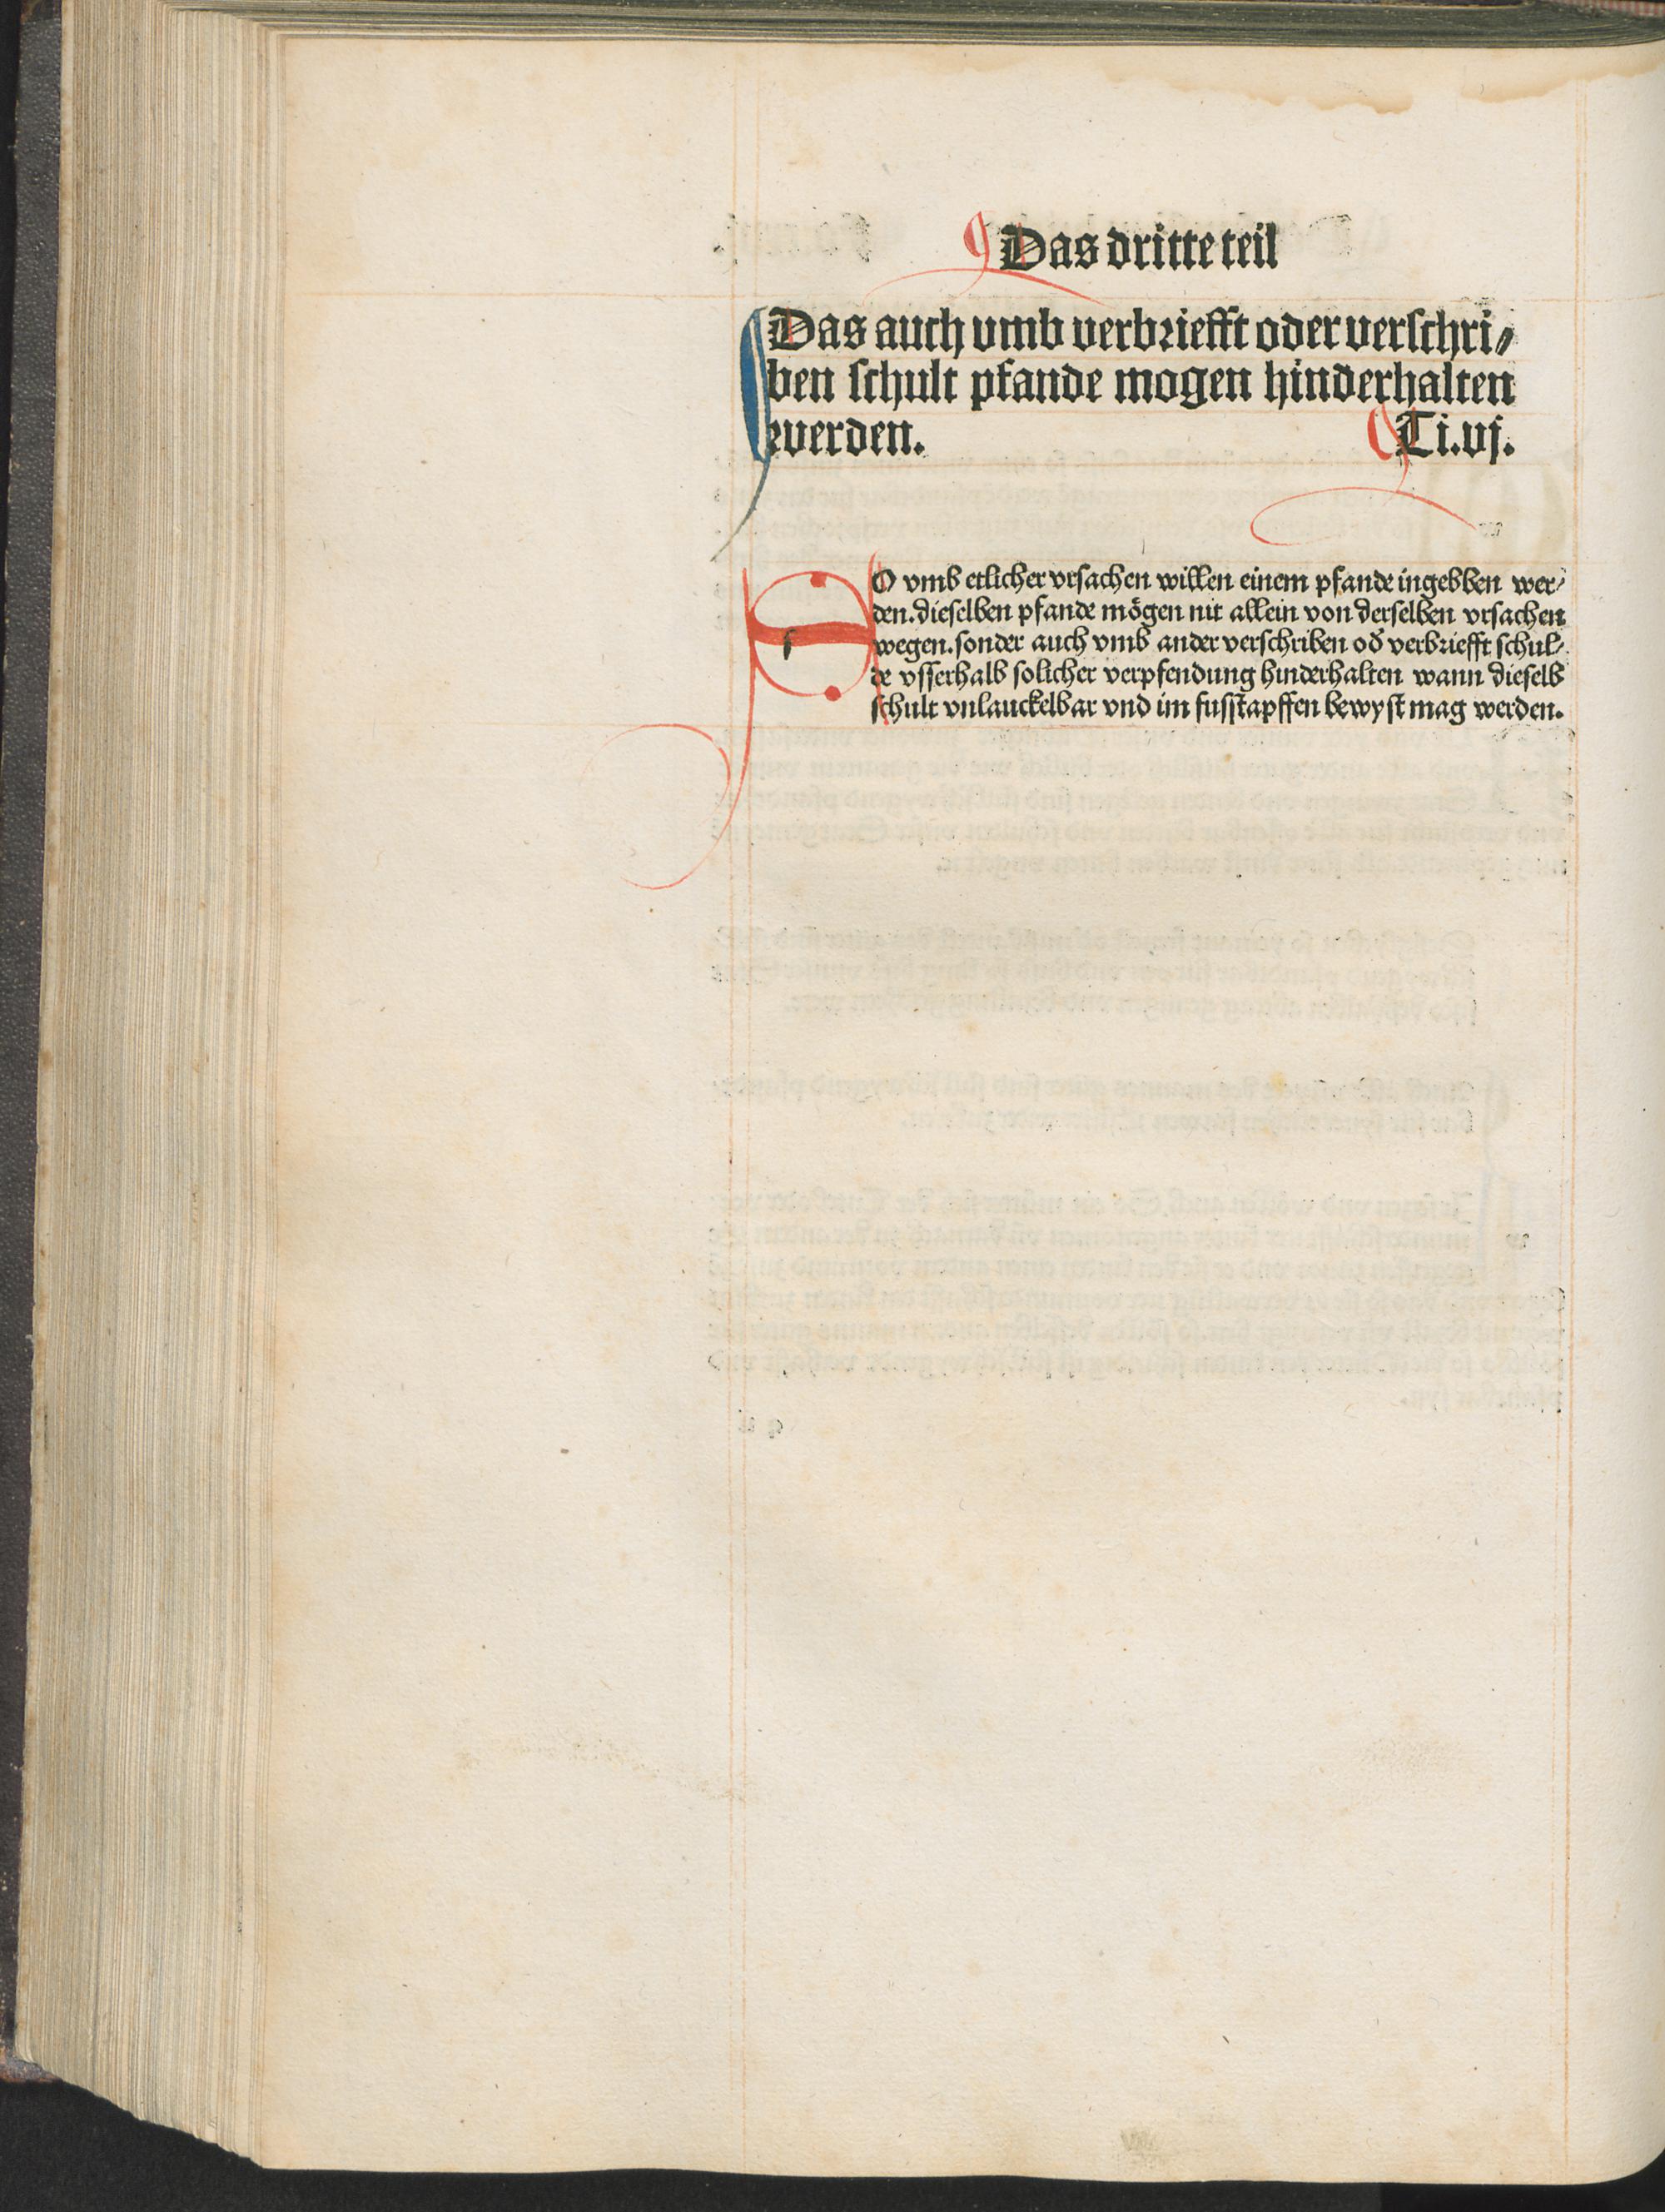 Das dritte teil
Das auch vmb verbriefft oder verschri⸗
ben schult pfande mogen hinderhalten
werden. Ti.vj.
SO vmb etlicher vrsachen willen einem pfande ingebben wer⸗
den. dieselben pfande mögen nit allein von derselben vrsachen
wegen. sonder auch vmb ander verschriben od̕ verbriefft schul⸗
de vsserhalb solicher verpfendung hinderhalten wann dieselb
schult vnlauckelbar vnd im fusstapffen bewyst mag werden.